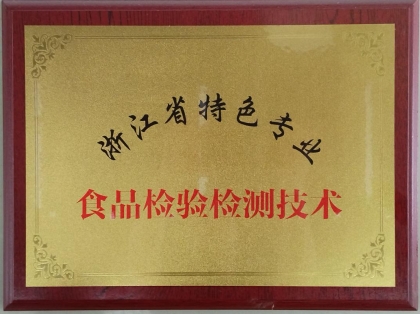 浙江省特色专业
食品检验检测技术